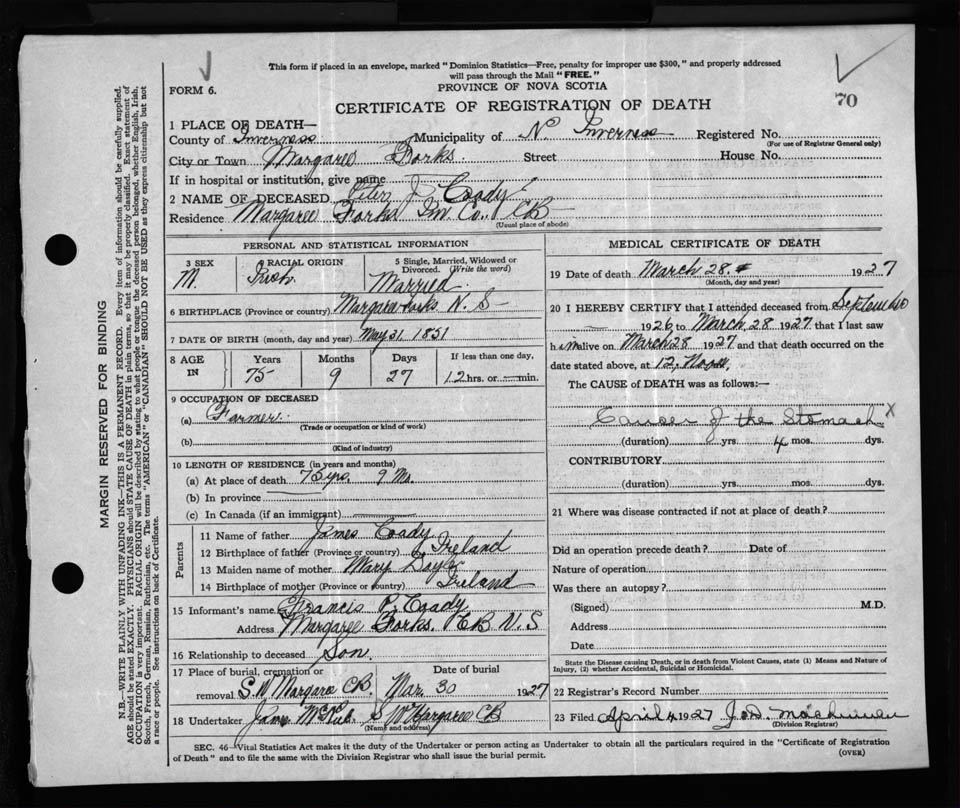 This form if placed in an envelope, marked "Dominion Statistics—Free, penalty for improper use $300," and properly addressed
will pass through the Mail "FREE."
FORM 6.
PROVINCE OF NOVA SCOTIA
CERTIFICATE OF REGISTRATION OF DEATH
70
1 PLACE OF DEATH—
County of Inverness Municipality of N. Inverness Registered No.
(For use of Registrar General only)
City or Town Margaree Forks. Street House No.
If in hospital or institution, give name
2 NAME OF DECEASED Peter J Coady
Residence Margaree Forks Inv. Co., CB
(Usual place of abode)
PERSONAL AND STATISTICAL INFORMATION
3 SEX M.
RACIAL ORIGIN Irish
5 Single, Married, Widowed or Divorced. (Write the word) Married
6 BIRTHPLACE (Province or country) Margaree Forks N. S
7 DATE OF BIRTH (month, day and year) May 31, 1851
8 AGE IN Years 75 Months 9 Days 27 If less than one day, 12 hrs. or min.
9 OCCUPATION OF DECEASED
(a) Farmer.
(Trade or occupation or kind of work)
(b)
(Kind of industry)
10 LENGTH OF RESIDENCE (in years and months)
(a) At place of death 75 yrs. 9 Mo.
(b) In province
(c) In Canada (if an immigrant)
Parents
11 Name of father James Coady
12 Birthplace of father (Province or country) Ireland
13 Maiden name of mother Mary Doyle
14 Birthplace of mother (Province or country) Ireland
15 Informant's name Francis P. Coady
Address Margaree Forks. CB N. S
16 Relationship to deceased Son.
17 Place of burial, cremation or removal S. W Margaree CB. Date of burial Mar. 30 1927
18 Undertaker S W Margaree CB
(Name and address)
MEDICAL CERTIFICATE OF DEATH
19 Date of death March 28. 1927
(Month, day and year)
20 I HEREBY CERTIFY that I attended deceased from September
1926 to March 28 1927 that I last saw
him alive on March 28 1927 and that death occurred on the
date stated above, at 12, Noon,
The CAUSE of DEATH was as follows:—
Cancer of the Stomach X
(duration) yrs. 4 mos. dys.
CONTRIBUTORY
(duration) yrs. mos. dys.
21 Where was disease contracted if not at place of death?
Did an operation precede death? Date of
Nature of operation
Was there an autopsy?
(Signed) M.D.
Address
Date
State the Disease causing Death, or in death from Violent Causes, state (1) Means and Nature of
Injury, (2) whether Accidental, Suicidal or Homicidal.
22 Registrar's Record Number
23 Filed April 4 1927 J. D.
(Division Registrar)
SEC. 46—Vital Statistics Act makes it the duty of the Undertaker or person acting as Undertaker to obtain all the particulars required in the "Certificate of Registration
of Death" and to file the same with the Division Registrar who shall issue the burial permit.
(OVER)
MARGIN RESERVED FOR BINDING
N.B.—WRITE PLAINLY WITH UNFADING INK—THIS IS A PERMANENT RECORD. Every item of information should be carefully supplied.
AGE should be stated EXACTLY. PHYSICIANS should STATE CAUSE OF DEATH in plain terms, so that it may be properly classified. Exact statement of
OCCUPATION is very important. RACIAL ORIGIN will be described by stating to what people or tongue the deceased person belonged, whether English, Irish,
Scotch, French, German, Russian, Ruthenian, etc. The terms "AMERICAN" or "CANADIAN" SHOULD NOT BE USED as they express citizenship but not
a race or people. See instructions on back of Certificate.